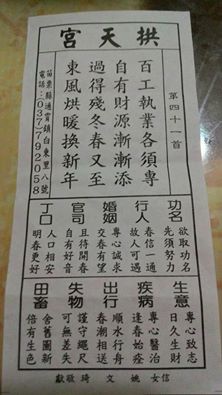 拱天宮
第四十一首
百工執業各須專
自有財源漸漸添
過得殘冬春又至
東風烘暖換新年
苗栗縣通霄鎮白東里八號
電話:(037)792058
功名
欲取功名
先須努力
行人
春信一通
故人可遇
婚姻
專心誠求
交春有望
官司
且待開春
自有好音
丁口
人口相安
明春更好
生意
專心致志
日久生財
疾病
專心醫治
逢春始痊
出行
順水行舟
春潮相送
失物
謹守繩尺
可無差失
田畜
舍舊圖新
倍有生色
信女 姚文琦 敬獻